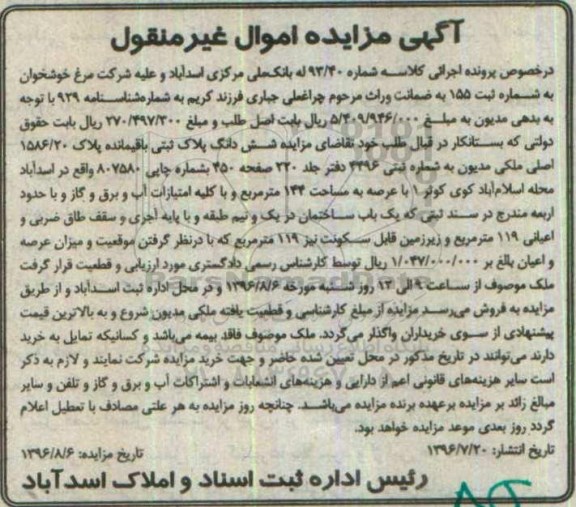 آگهی مزایده اموال غیرمنقول
درخصوص پرونده اجرائی کلاسه شماره ۹۳/۴۰ له بانک‌ملی مرکزی اسدآباد و علیه شرکت مرغ خوشخوان
به شماره ثبت ۱۵۵ به ضمانت وراث مرحوم چراغعلی جباری فرزند کریم به شماره‌شناسنامه ۹۲۹ با توجه
به بدهی مدیون به مبلغ ۵/۴۰۹/۹۴۶/۰۰۰ ریال بابت اصل طلب و مبلغ ۲۷۰/۴۹۷/۳۰۰ ریال بابت حقوق
دولتی که بستانکار در قبال طلب خود تقاضای مزایده شش دانگ پلاک ثبتی باقیمانده پلاک ۱۵۸۶/۲۰
اصلی ملکی مدیون به شماره ثبتی ۴۴۹۶ دفتر جلد ۲۲۰ صفحه ۴۵۰ بشماره چاپی ۸۰۷۵۸۰ واقع در اسدآباد
محله اسلام‌آباد کوی کوثر ۱ با عرصه به مساحت ۱۴۴ مترمربع و با کلیه امتیازات آب و برق و گاز و با حدود
اربعه مندرج در سند ثبتی که یک باب ساختمان در یک و نیم طبقه و با پایه آجری و سقف طاق ضربی و
اعیانی ۱۱۹ مترمربع و زیرزمین قابل سکونت نیز ۱۱۹ مترمربع که با درنظر گرفتن موقعیت و میزان عرصه
و اعیان بالغ بر ۱/۰۴۷/۰۰۰/۰۰۰ ریال توسط کارشناس رسمی دادگستری مورد ارزیابی و قطعیت قرار گرفت
ملک موصوف از ساعت ۹ الی ۱۲ روز شنبه مورخه ۱۳۹۶/۸/۶ و در محل اداره ثبت اسدآباد و از طریق
مزایده به فروش می‌رسد مزایده از مبلغ کارشناسی و قطعیت یافته ملکی مدیون شروع و به بالاترین قیمت
پیشنهادی از سوی خریداران واگذار می‌گردد. ملک موضوف فاقد بیمه می‌باشد و کسانیکه تمایل به خرید
دارند می‌توانند در تاریخ مذکور در محل تعیین شده حاضر و جهت خرید مزایده شرکت نمایند و لازم به ذکر
است سایر هزینه‌های قانونی اعم از دارایی و هزینه‌های انشعابات و اشتراکات آب و برق و گاز و تلفن و سایر
مبالغ زائد بر مزایده برعهده برنده مزایده می‌باشد. چنانچه روز مزایده به هر علتی مصادف با تعطیل اعلام
گردد روز بعدی موعد مزایده خواهد بود.
تاریخ انتشار: ۱۳۹۶/۷/۲۰ تاریخ مزایده: ۱۳۹۶/۸/۶
رئیس اداره ثبت اسناد و املاک اسدآباد